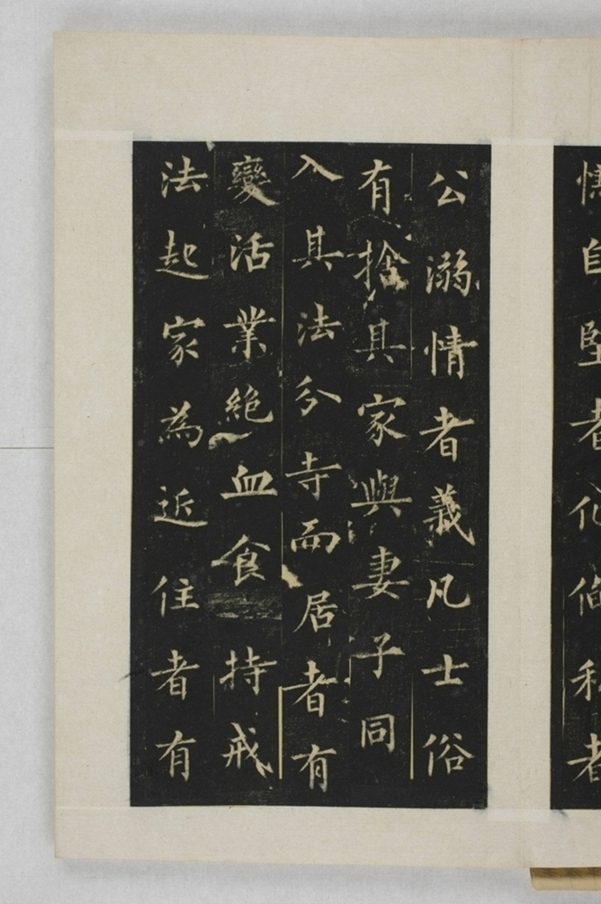 情自堅者化徇私者
公溺情者義凡士俗
有捨其家與妻子同
入其法分寺而居者有
變活業絕血食持戒
法起家為近住者有